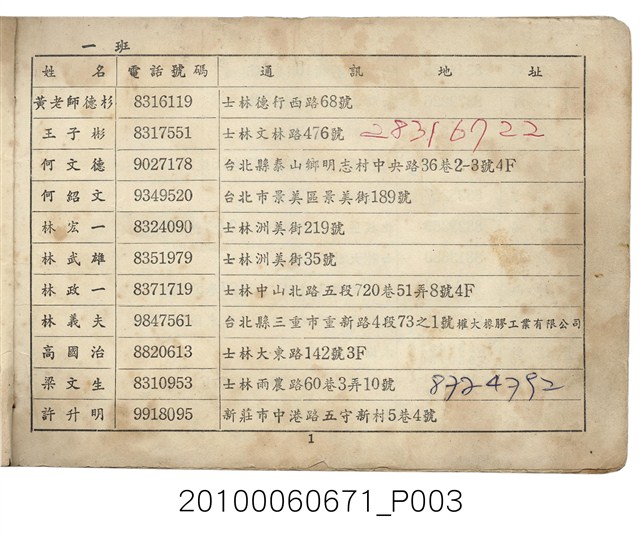 一班
姓名 電話號碼 通訊地址
黃老師德杉 8316119 士林德行西路68號
王子彬 8317551 士林文林路476號 28316722
何文德 9027178 台北縣泰山鄉明志村中央路36巷2-3號4F
何紹文 9349520 台北市景美區景美街189號
林宏一 8324090 士林洲美街219號
林武雄 8351979 士林洲美街35號
林政一 8371719 士林中山北路五段720巷51弄8號4F
林義夫 9847561 台北縣三重市重新路4段73之1號權大橡膠工業有限公司
高國治 8820613 士林大東路142號3F
梁文生 8310953 士林雨農路60巷3弄10號 8724792
許升明 9918095 新莊市中港路五守新村5巷4號
1
20100060671_P003